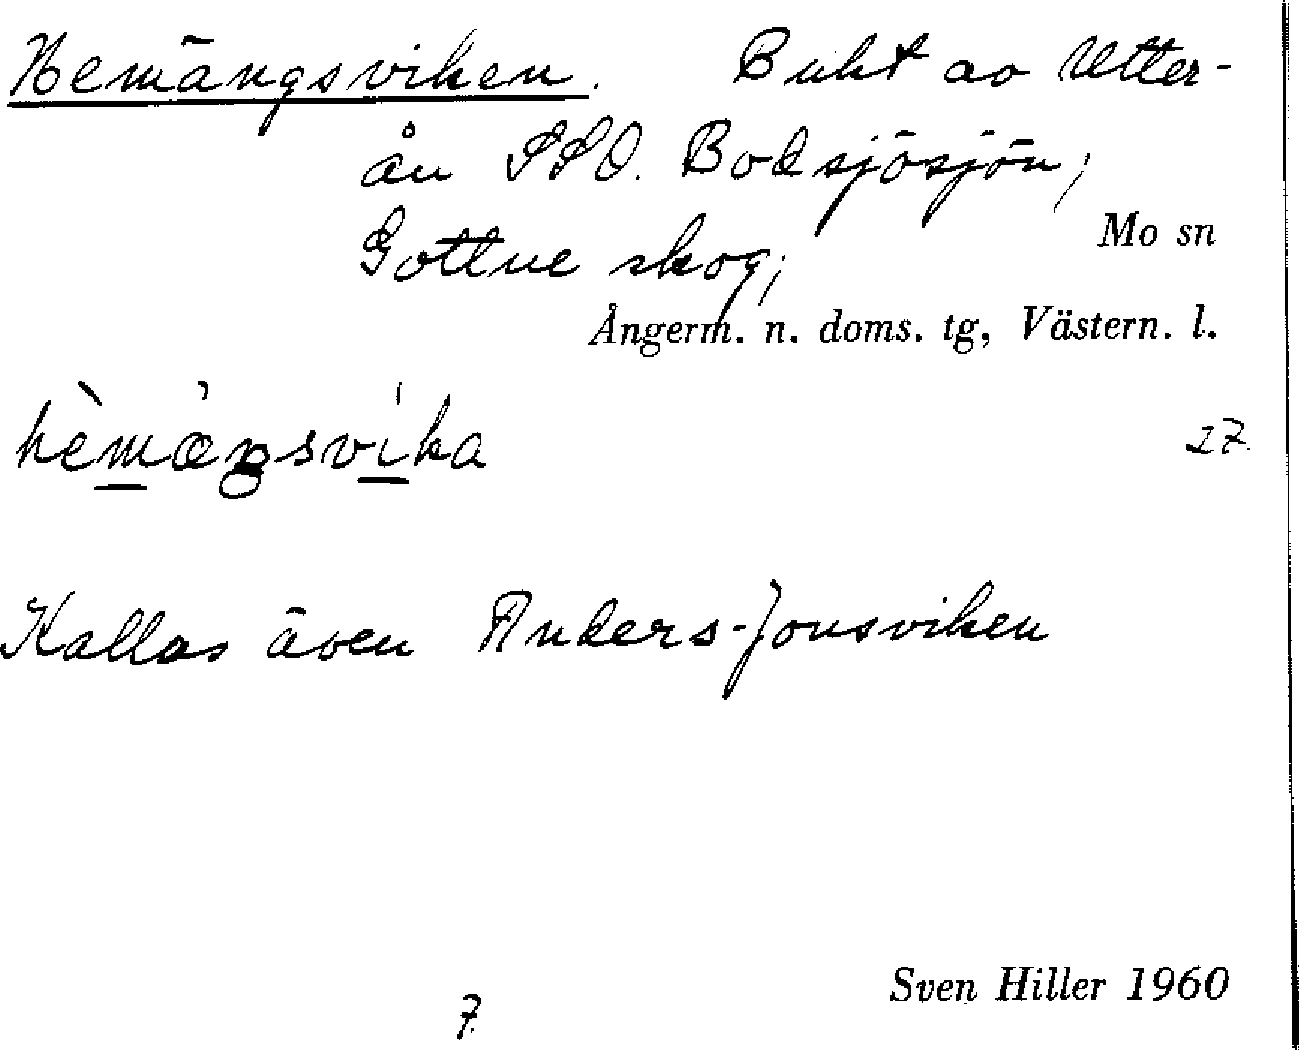 Hemängsviken. Bukt av Utter-
ån SSO. Bodsjösjön;
Gottne skog;
Mo sn
Ångerm. n. doms. tg, Västern. l.
hèmæ̀ŋsvíka
27.
Kallas även Anders-Jonsviken
Sven Hiller 1960
7.